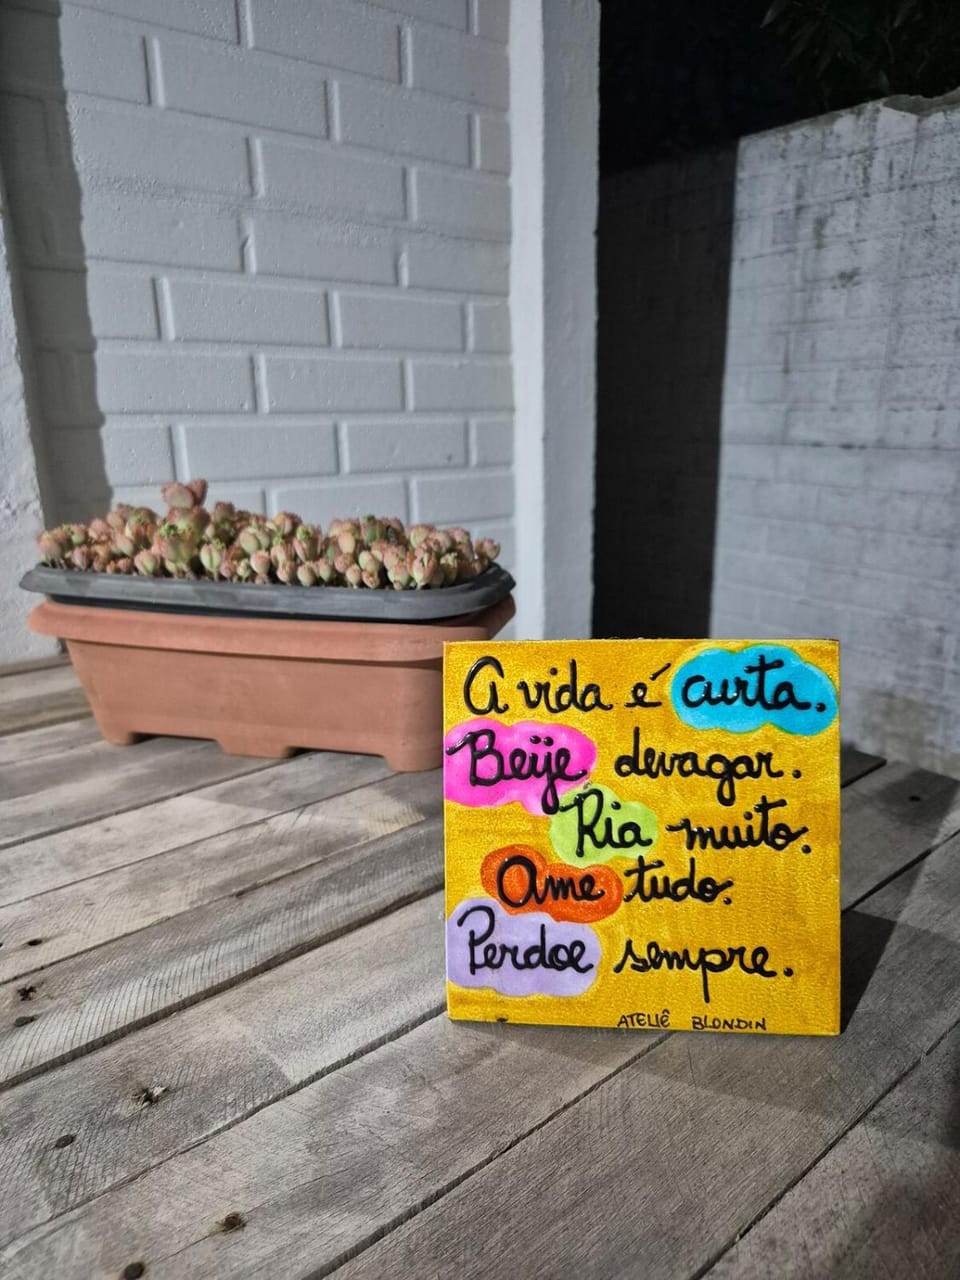 A vida é curta.
Beije devagar.
Ria muito.
Ame tudo.
Perdoe sempre.
ATELIÊ BLONDIN